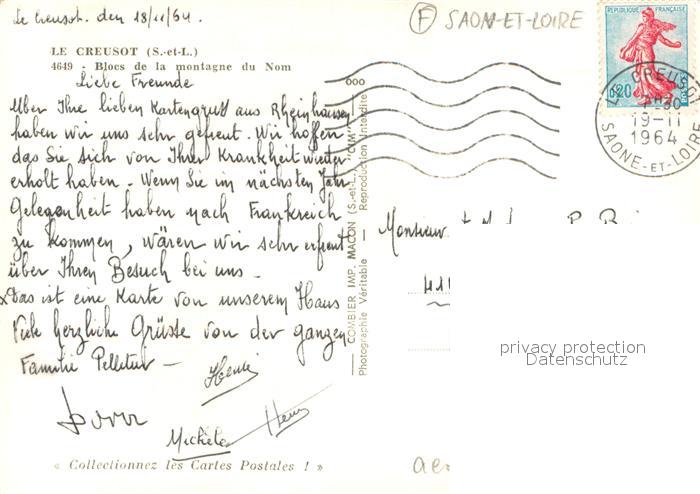 Le Creusot den 18/11/64.
F SAON-ET-LOIRE
LE CREUSOT (S.-et-L.)
4649 - Blocs de la montagne du Nom
Liebe Freunde
Über Ihre lieben Kartengruss aus Rheinhausen
haben wir uns sehr gefreut. Wir hoffen
das Sie sich von Ihrer Krankheit wieder
erholt haben. Wenn Sie im nächsten Jahr
Gelegenheit haben nach Frankreich
zu kommen, wären wir sehr erfreut
über Ihren Besuch bei uns.
Das ist eine Karte von unserem Haus
Viele herzliche Grüsse von der ganzen
Familie
Henri
Michèle
« Collectionnez les Cartes Postales ! »
COMBIER IMP. MACON (S.-et-L.) "CIM"
Photographie Véritable - Reproduction Interdite
REPUBLIQUE FRANÇAISE
0,20
LE CREUSOT
19-11
1964
SAONE-ET-LOIRE
Monsieur
privacy protection
Datenschutz